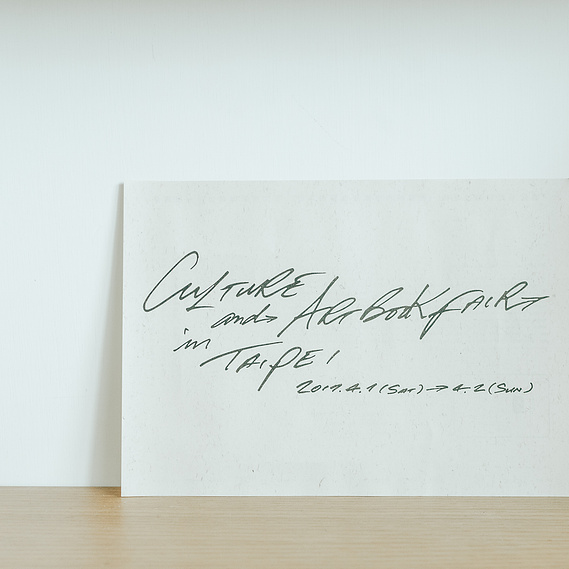 CULTURE
and ARTBOOK FAIR
in
TAIPEI
2017.4.1 (SAT) → 4.2 (SUN)